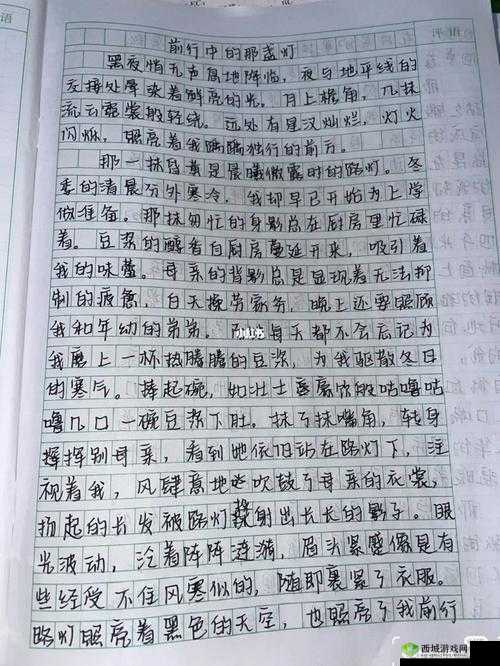 前行中的那盏灯
黑夜悄无声息地降临，夜与地平线的
交接处晕染着鲜亮的光。月上檐角，几抹
流云霓裳般轻绕。远处有星汉灿烂，灯火
闪烁，照亮着我踽踽独行的前方。
那一抹昏黄是晨曦微露时的路灯。冬
季的清晨分外寒冷。我却早已开始为上学
做准备。那抹匆忙的身影总在厨房里忙碌
着。豆浆的醇香自厨房蔓延开来，吸引着
我的味蕾。母亲的背影总是显现着无法抑
制的疲惫，白天操劳家务，晚上还要照顾
我和年幼的弟弟。每天都不会忘记为
我磨上一杯热腾腾的豆浆，为我驱散冬日
的寒气。捧起碗，如壮士豪饮般咕噜咕
噜几口一碗豆浆下肚。抹了抹嘴角，转身
挥挥别母亲，看到她依旧站在路灯下，注
视着我，风肆意地吹鼓了母亲的衣裳，
扬起的长发被路灯投射出长长的影子。眼
光波动，泛着阵阵涟漪，眉头紧蹙像是有
些经受不住风寒似的，随即裹紧了衣服。
路灯照亮着黑色的天空，也照亮了我前行
小红书
西城游戏网